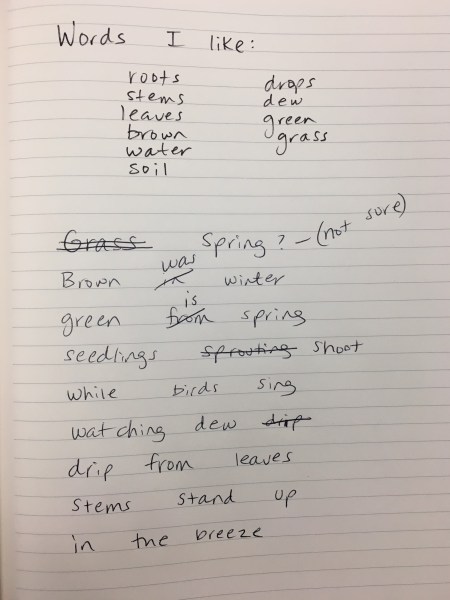 Words I like:
roots
stems
leaves
brown
water
soil
drops
dew
green
grass
Grass Spring? - (not sure)
was
Brown in winter
is
green from spring
seedlings sprouting shoot
while birds sing
watching dew drip
drip from leaves
stems stand up
in the breeze